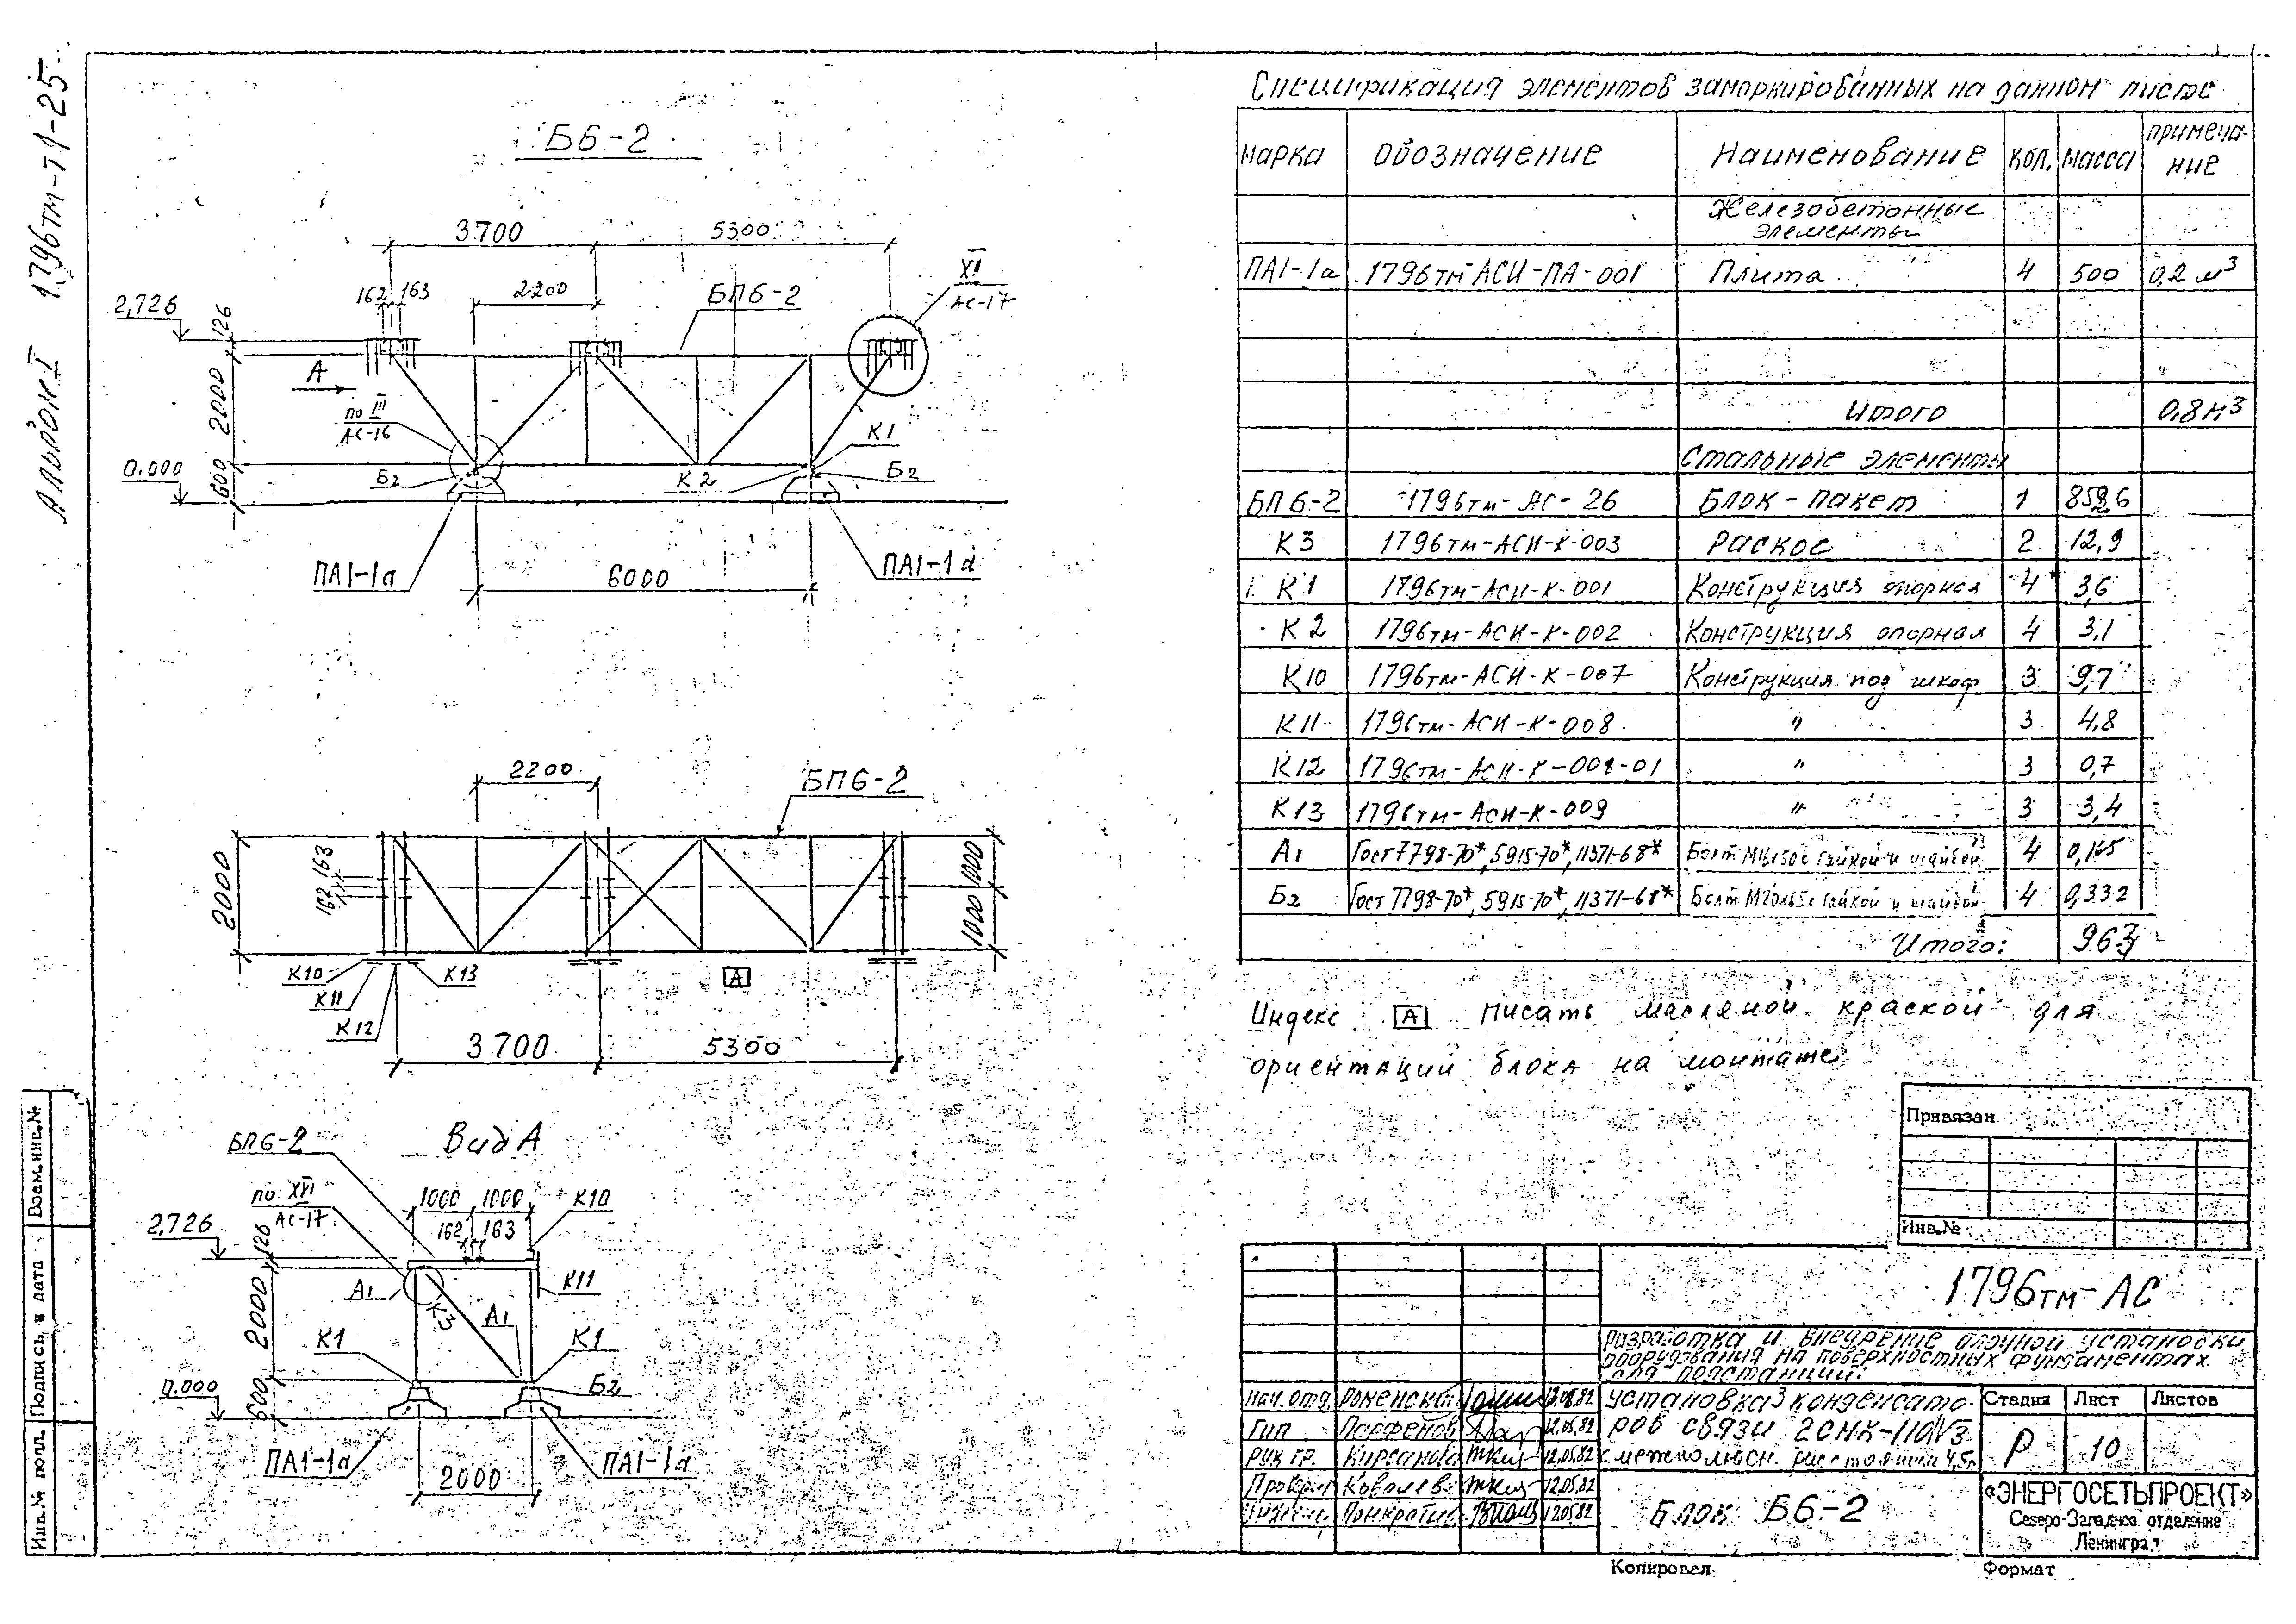 Альбом I 1796тм-т1-25
Б6-2
3700 5300
XI
АС-17
162 163 2200 БП6-2
2,726
126
А
2000
по III
АС-16
К1
0.000
600
Б2 К2 Б2
ПА1-1а 6000 ПА1-1а
2200
БП6-2
2000
163
162
1000
1000
К10 К13
К11
К12
А
3700 5300
Вид А
БП6-2
по XVI
АС-17
1000 1000 К10
162 163
2,726
126
2000
А1 К3 А1 К11
К1 К1
0.000
600
Б2
ПА1-1а 2000 ПА1-1а
Спецификация элементов замаркированных на данном листе
Марка Обозначение Наименование Кол. Масса Примеча-
ние
Железобетонные
элементы
ПА1-1а 1796тм-АСИ-ПА-001 Плита 4 500 0,2 м³
Итого 0,8 м³
Стальные элементы
БП6-2 1796тм-АС-26 Блок-пакет 1 859,6
К3 1796тм-АСИ-К-003 Раскос 2 12,9
К1 1796тм-АСИ-К-001 Конструкция опорная 4 3,6
К2 1796тм-АСИ-К-002 Конструкция опорная 4 3,1
К10 1796тм-АСИ-К-007 Конструкция под шкаф 3 9,7
К11 1796тм-АСИ-К-008 " 3 4,8
К12 1796тм-АСИ-К-008-01 " 3 0,7
К13 1796тм-АСИ-К-009 " 3 3,4
А1 Гост 7798-70*, 5915-70*, 11371-68* Болт М16х50 с гайкой и шайбой 4 0,165
Б2 Гост 7798-70*, 5915-70*, 11371-68* Болт М20х65 с гайкой и шайбой 4 0,332
Итого: 963
Индекс А писать масляной краской для
ориентации блока на монтаже
Привязан
Инв.№
1796тм-АС
Разработка и внедрение блочной установки
оборудования на поверхностных фундаментах
для подстанций.
Нач. отд. Роменский 12.05.82
Гип Парфенов 12.05.82
Рук. гр. Кирсанова 12.05.82
Провер. Ковалев 12.05.82
Панкратов 12.05.82
Установка 3 конденсато-
ров связи 2СМК-110/√3
с межполюсн. расстоянием 4,5м
Стадия Лист Листов
Р 10
Блок Б6-2
«ЭНЕРГОСЕТЬПРОЕКТ»
Северо-Западное отделение
Ленинград
Копировал Формат
Взам.инв.№
Подпись и дата
Инв.№ подл.